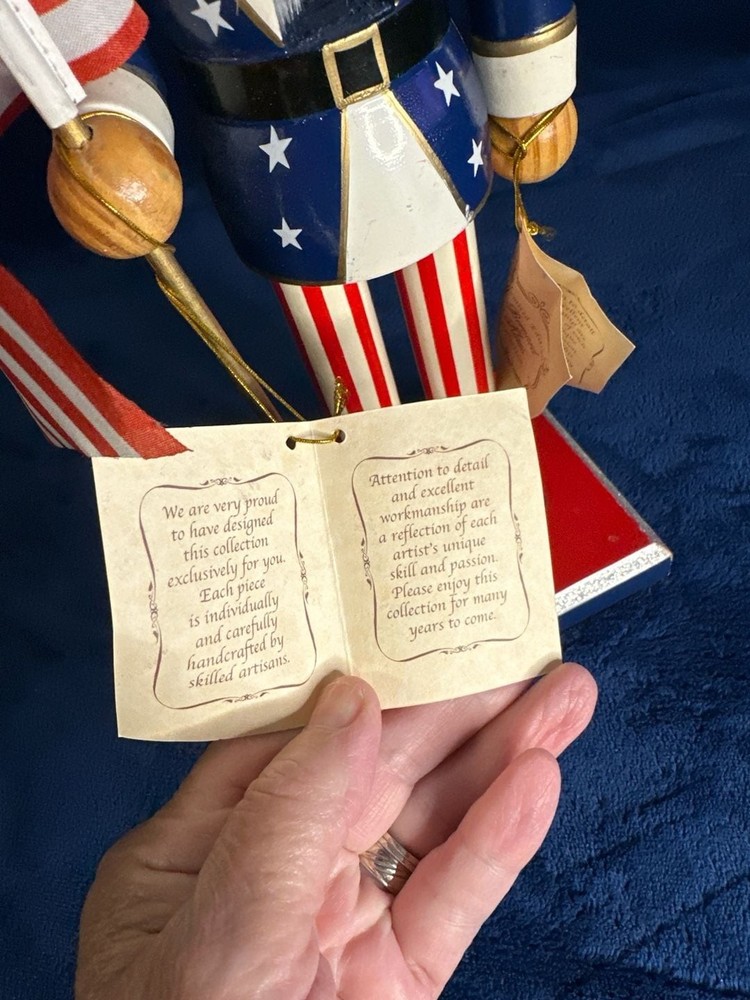 We are very proud
to have designed
this collection
exclusively for you.
Each piece
is individually
and carefully
handcrafted by
skilled artisans.
Attention to detail
and excellent
workmanship are
a reflection of each
artist's unique
skill and passion.
Please enjoy this
collection for many
years to come.